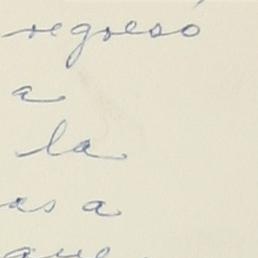 regresó
a
la
as a
que